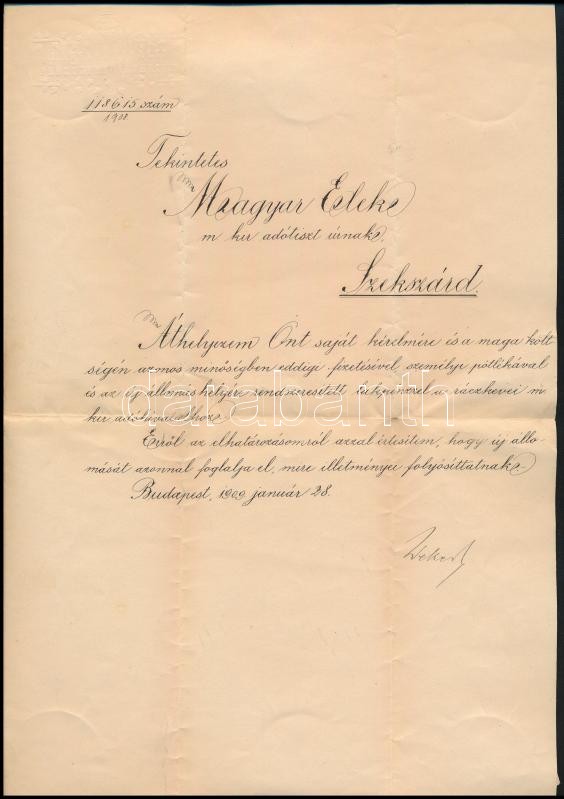 118615 szám
1908
Tekintetes
Magyar Elek
m kir adótiszt úrnak,
Szekszárd.
Áthelyezem Önt saját kérelmére és a maga költ
ségén azonos minőségben eddigi fizetésével, személyi pótlékával
és az új állomás helyére rendszeresített lakpénzzel a ráczkevei m
kir adóhivatalhoz.
Erről az elhatározásomról azzal értesítem, hogy új állo-
mását azonnal foglalja el, mire illetményei folyósíttatnak.
Budapest, 1909 január 28.
Wekerle
darabanth